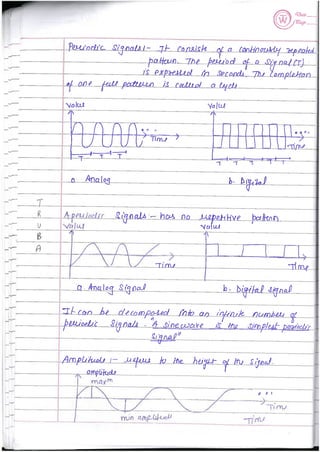 Date
Page
Periodic Signals:- It consists of a continously repeated
pattern. The period of a signal (T)
is expressed in seconds. The completion
of one full pattern is called a cycle
Value
Value
Time
Time
T T T
T T T T
a. Analog
b. Digital
Aperiodic Signals - has no repetitive pattern.
Value
Value
Time
Time
a. Analog Signal
b. Digital signal
It can be decomposed into an infinite numbers of
periodic signals. "A sinewave is the simplest periodic
signal"
Amplitude :- refers to the height of the signal.
amplitude
maxm
min amplitude
Time
T
R
U
B
A